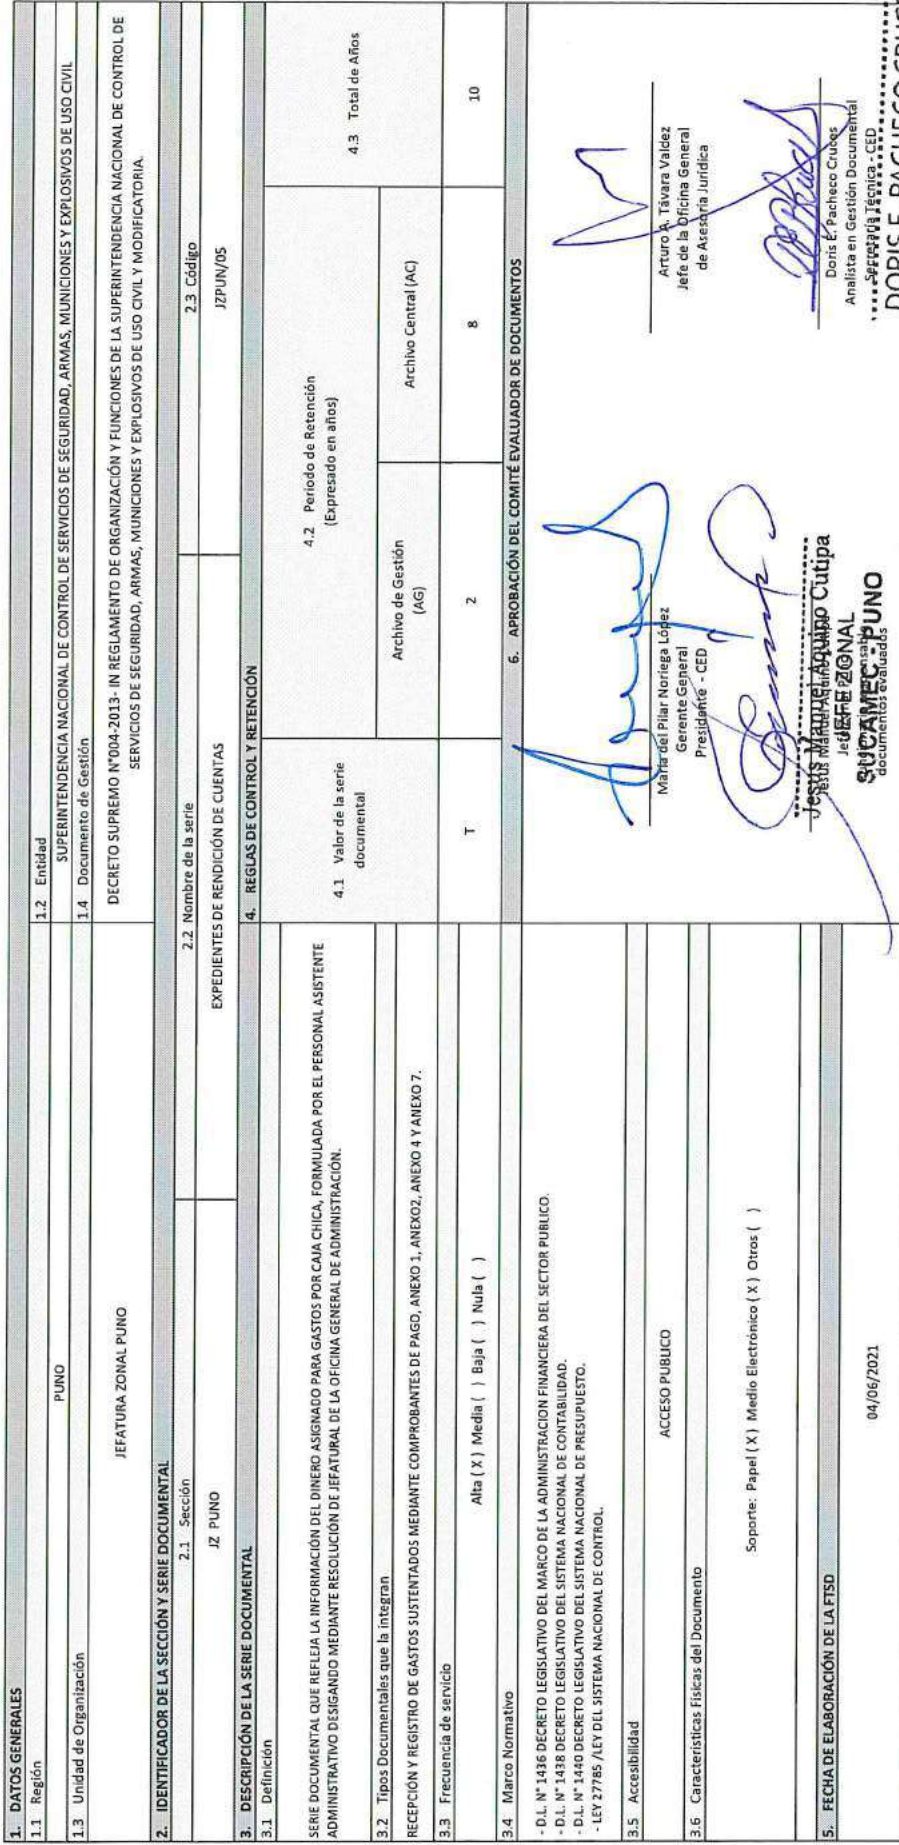 1. DATOS GENERALES
1.1 Región
PUNO
1.2 Entidad
SUPERINTENDENCIA NACIONAL DE CONTROL DE SERVICIOS DE SEGURIDAD, ARMAS, MUNICIONES Y EXPLOSIVOS DE USO CIVIL
1.3 Unidad de Organización
JEFATURA ZONAL PUNO
1.4 Documento de Gestión
DECRETO SUPREMO N°004-2013- IN REGLAMENTO DE ORGANIZACIÓN Y FUNCIONES DE LA SUPERINTENDENCIA NACIONAL DE CONTROL DE
SERVICIOS DE SEGURIDAD, ARMAS, MUNICIONES Y EXPLOSIVOS DE USO CIVIL Y MODIFICATORIA.
2. IDENTIFICADOR DE LA SECCIÓN Y SERIE DOCUMENTAL
2.1 Sección
2.2 Nombre de la serie
2.3 Código
JZ PUNO
EXPEDIENTES DE RENDICIÓN DE CUENTAS
JZPUN/05
3. DESCRIPCIÓN DE LA SERIE DOCUMENTAL
3.1 Definición
SERIE DOCUMENTAL QUE REFLEJA LA INFORMACIÓN DEL DINERO ASIGNADO PARA GASTOS POR CAJA CHICA, FORMULADA POR EL PERSONAL ASISTENTE
ADMINISTRATIVO DESIGANDO MEDIANTE RESOLUCIÓN DE JEFATURAL DE LA OFICINA GENERAL DE ADMINISTRACIÓN.
3.2 Tipos Documentales que la integran
RECEPCIÓN Y REGISTRO DE GASTOS SUSTENTADOS MEDIANTE COMPROBANTES DE PAGO, ANEXO 1, ANEXO2, ANEXO 4 Y ANEXO 7.
3.3 Frecuencia de servicio
Alta ( X ) Media ( ) Baja ( ) Nula ( )
3.4 Marco Normativo
- D.L. N° 1436 DECRETO LEGISLATIVO DEL MARCO DE LA ADMINISTRACION FINANCIERA DEL SECTOR PUBLICO.
- D.L. N° 1438 DECRETO LEGISLATIVO DEL SISTEMA NACIONAL DE CONTABILIDAD.
- D.L. N° 1440 DECRETO LEGISLATIVO DEL SISTEMA NACIONAL DE PRESUPUESTO.
- LEY 27785 /LEY DEL SISTEMA NACIONAL DE CONTROL.
3.5 Accesibilidad
ACCESO PUBLICO
3.6 Características Físicas del Documento
Soporte: Papel ( X ) Medio Electrónico ( X ) Otros ( )
5. FECHA DE ELABORACIÓN DE LA FTSD
04/06/2021
4. REGLAS DE CONTROL Y RETENCIÓN
4.1 Valor de la serie
documental
4.2 Periodo de Retención
(Expresado en años)
4.3 Total de Años
Archivo de Gestión
(AG)
Archivo Central (AC)
T
2
8
10
6. APROBACIÓN DEL COMITÉ EVALUADOR DE DOCUMENTOS
María del Pilar Noriega López
Gerente General
Presidente - CED
Arturo A. Távara Valdez
Jefe de la Oficina General
de Asesoría Jurídica
Jesús Manuel Aquino Cutipa
JEFE ZONAL
SUCAMEC - PUNO
documentos evaluados
Doris E. Pacheco Cruces
Analista en Gestión Documental
Secretaría Técnica - CED
DORIS E. PACHECO